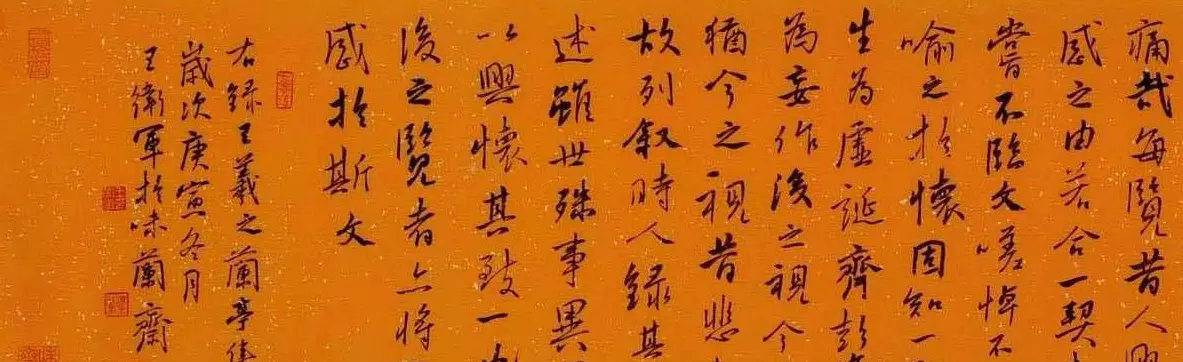 痛哉每覽昔人
感之由若合一契
嘗不臨文嗟悼不
喻之於懷固知一
生為虛誕齊彭
為妄作後之視今
猶今之視昔悲
故列叙時人録其
述雖世殊事異
以興懷其致一
後之覽者亦将
感於斯文
右録王羲之蘭亭
歲次庚寅冬月
王衛軍於味蘭齋